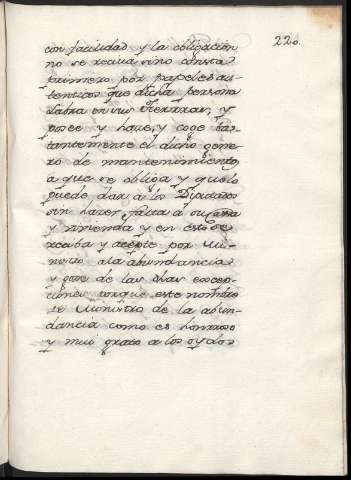 220.
con facilidad y la obligacion
no se reciua sino consta
primero por papeles au-
tenticos que dicha persona
labra en sus tierras, y
posee y haue, y coge bas-
tantemente el dicho gene-
ro de mantenimiento
a que se obliga y que lo
puede dar â los Diputados
sin hazer falta â su cassa
y vivienda y en esto se
reciba y acepte por Mi-
nistro â la abundancia
y goze de las dhas excep-
ciones porque este nombre
de Ministro de la abun-
dancia como es honrroso
y mui grato a los oydos